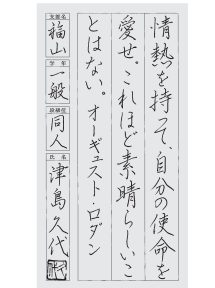 情熱を持って、自分の使命を
愛せ。これほど素晴らしいこ
とはない。オーギュスト・ロダン
支部名
福山
学年
一般
段級位
同人
氏名
津島久代